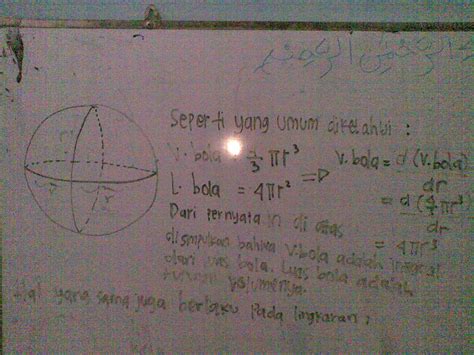 الرحمن الرحيم
Seperti yang umum diketahui :
V. bola = 4/3 πr³
L. bola = 4πr²
⇒ V. bola = d (V. bola) / dr
= d (4/3 πr³) / dr
= 4πr³
Dari pernyataan di atas
disimpulkan bahwa V.bola adalah integral
dari luas bola. Luas bola adalah
turunan volumenya.
Hal yang sama juga berlaku pada lingkaran,